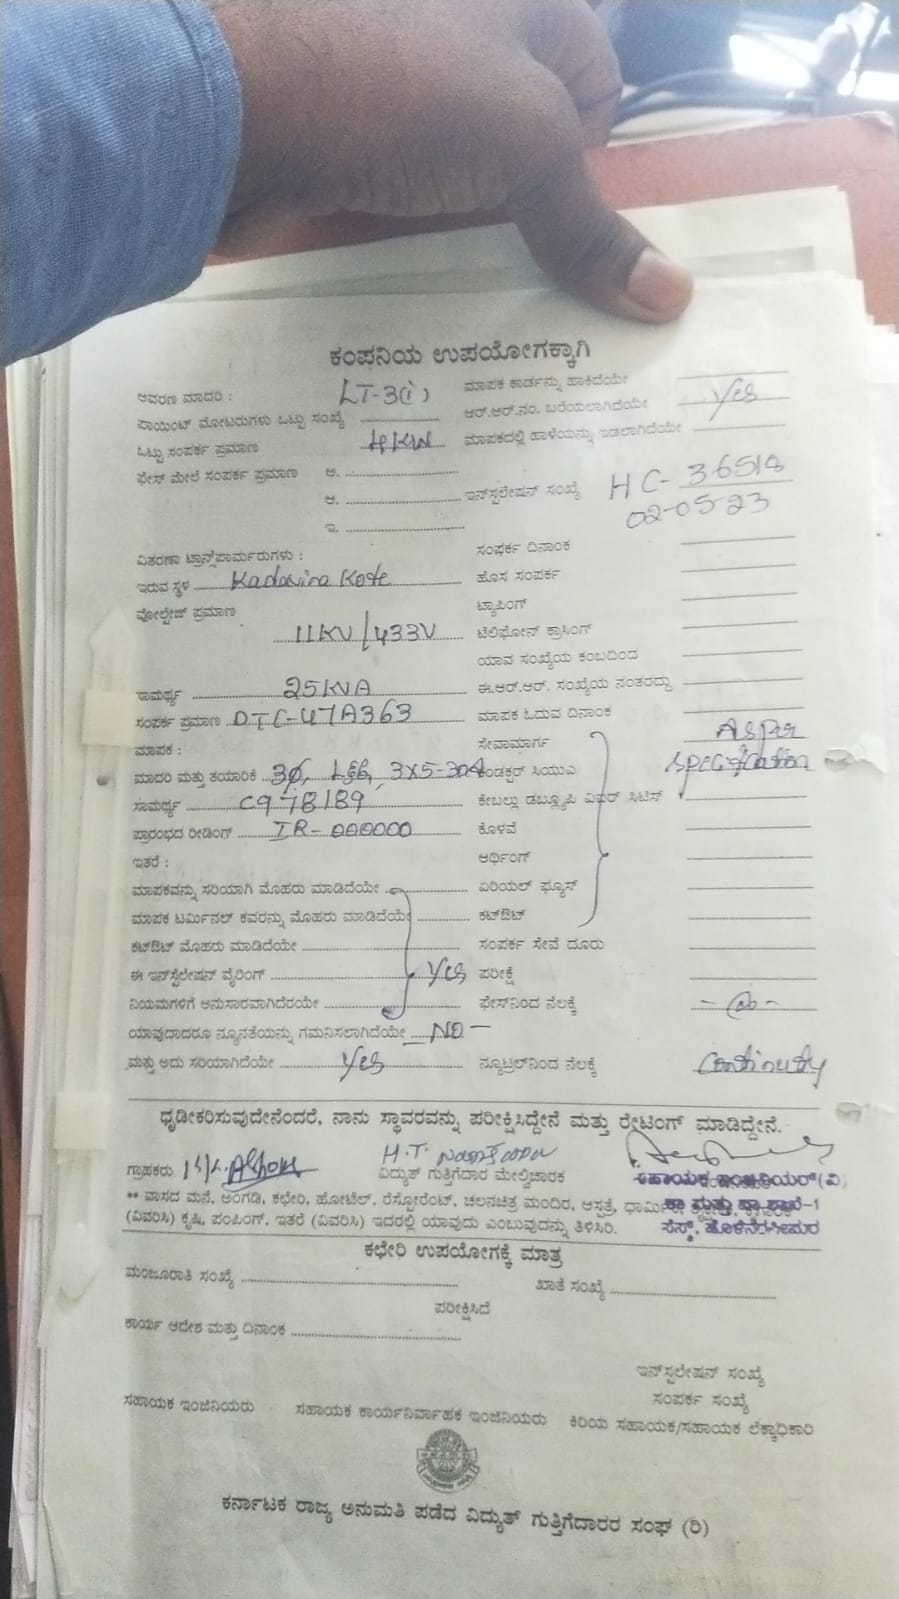 ಕಂಪನಿಯ ಉಪಯೋಗಕ್ಕಾಗಿ
ಆವರಣ ಮಾದರಿ : LT-3(i) ಮಾಪಕ ಕಾರ್ಡನ್ನು ಹಾಕಿದೆಯೇ
ಪಾಯಿಂಟ್ ಮೋಟರುಗಳು ಒಟ್ಟು ಸಂಖ್ಯೆ ಆರ್.ಆರ್.ನಂ. ಬರೆಯಲಾಗಿದೆಯೇ Yes
ಒಟ್ಟು ಸಂಪರ್ಕ ಪ್ರಮಾಣ 4KW ಮಾಪಕದಲ್ಲಿ ಹಾಳೆಯನ್ನು ಇಡಲಾಗಿದೆಯೇ
ಫೇಸ್ ಮೇಲೆ ಸಂಪರ್ಕ ಪ್ರಮಾಣ ಅ.
ಆ. ಇನ್‌ಸ್ಟಲೇಷನ್ ಸಂಖ್ಯೆ HC-36518
ಇ. 02-05-23
ವಿತರಣಾ ಟ್ರಾನ್ಸ್‌ಪಾರ್ಮರುಗಳು : ಸಂಪರ್ಕ ದಿನಾಂಕ
ಇರುವ ಸ್ಥಳ Kadavina Kote ಹೊಸ ಸಂಪರ್ಕ
ವೋಲ್ಟೇಜ್ ಪ್ರಮಾಣ ಟ್ಯಾಪಿಂಗ್
11KV/433V ಟೆಲಿಫೋನ್ ಕ್ರಾಸಿಂಗ್
ಯಾವ ಸಂಖ್ಯೆಯ ಕಂಬದಿಂದ
ಸಾಮರ್ಥ್ಯ 25KVA ಈ.ಆರ್.ಆರ್. ಸಂಖ್ಯೆಯ ನಂತರದ್ದು
ಸಂಪರ್ಕ ಪ್ರಮಾಣ DTC-47A363 ಮಾಪಕ ಓದುವ ದಿನಾಂಕ
ಮಾಪಕ : ಸೇವಾಮಾರ್ಗ As per
ಮಾದರಿ ಮತ್ತು ತಯಾರಿಕೆ 3Ø, L&G, 3x5-30A ಕಂಡಕ್ಟರ್ ಸಿಯುಎ specification
ಸಾಮರ್ಥ್ಯ C978189 ಕೇಬಲ್ಲು ಡಬ್ಲ್ಯೂಪಿ ವಿಐಆರ್ ಸಿಟಿಸ್
ಪ್ರಾರಂಭದ ರೀಡಿಂಗ್ IR-000000 ಕೊಳವೆ
ಇತರೆ : ಆರ್ಥಿಂಗ್
ಮಾಪಕವನ್ನು ಸರಿಯಾಗಿ ಮೊಹರು ಮಾಡಿದೆಯೇ ಏರಿಯಲ್ ಫ್ಯೂಸ್
ಮಾಪಕ ಟರ್ಮಿನಲ್ ಕವರನ್ನು ಮೊಹರು ಮಾಡಿದೆಯೇ ಕಟ್‌ಔಟ್
ಕಟ್‌ಔಟ್ ಮೊಹರು ಮಾಡಿದೆಯೇ ಸಂಪರ್ಕ ಸೇವೆ ದೂರು
ಈ ಇನ್‌ಸ್ಟಲೇಷನ್ ವೈರಿಂಗ್ Yes ಪರೀಕ್ಷೆ
ನಿಯಮಗಳಿಗೆ ಅನುಸಾರವಾಗಿದೆರಯೇ ಫೇಸ್‌ನಿಂದ ನೆಲಕ್ಕೆ
ಯಾವುದಾದರೂ ನ್ಯೂನತೆಯನ್ನು ಗಮನಿಸಲಾಗಿದೆಯೇ NO-
ಮತ್ತು ಅದು ಸರಿಯಾಗಿದೆಯೇ Yes ನ್ಯೂಟ್ರಲ್‌ನಿಂದ ನೆಲಕ್ಕೆ Continuty
ಧೃಡೀಕರಿಸುವುದೇನೆಂದರೆ, ನಾನು ಸ್ಥಾವರವನ್ನು ಪರೀಕ್ಷಿಸಿದ್ದೇನೆ ಮತ್ತು ರೇಟಿಂಗ್ ಮಾಡಿದ್ದೇನೆ.
ಗ್ರಾಹಕರು H.T. ವಿದ್ಯುತ್ ಗುತ್ತಿಗೆದಾರ ಮೇಲ್ವಿಚಾರಕ ಸಹಾಯಕ ಇಂಜಿನಿಯರ್(ವಿ)
** ವಾಸದ ಮನೆ, ಅಂಗಡಿ, ಕಛೇರಿ, ಹೋಟೆಲ್, ರೆಸ್ಟೋರೆಂಟ್, ಚಲನಚಿತ್ರ ಮಂದಿರ, ಆಸ್ಪತ್ರೆ, ಧಾರ್ಮಿಕ
(ವಿವರಿಸಿ) ಕೃಷಿ, ಪಂಪಿಂಗ್, ಇತರೆ (ವಿವರಿಸಿ) ಇದರಲ್ಲಿ ಯಾವುದು ಎಂಬುವುದನ್ನು ತಿಳಿಸಿರಿ. ಸೆಸ್ಕ್, ಹೊಳೆನರಸೀಪುರ
ಕಛೇರಿ ಉಪಯೋಗಕ್ಕೆ ಮಾತ್ರ
ಮಂಜೂರಾತಿ ಸಂಖ್ಯೆ ಖಾತೆ ಸಂಖ್ಯೆ
ಪರೀಕ್ಷಿಸಿದೆ
ಕಾರ್ಯ ಆದೇಶ ಮತ್ತು ದಿನಾಂಕ
ಇನ್‌ಸ್ಟಲೇಷನ್ ಸಂಖ್ಯೆ
ಸಂಪರ್ಕ ಸಂಖ್ಯೆ
ಸಹಾಯಕ ಇಂಜಿನಿಯರು ಸಹಾಯಕ ಕಾರ್ಯನಿರ್ವಾಹಕ ಇಂಜಿನಿಯರು ಕಿರಿಯ ಸಹಾಯಕ/ಸಹಾಯಕ ಲೆಕ್ಕಾಧಿಕಾರಿ
ಕರ್ನಾಟಕ ರಾಜ್ಯ ಅನುಮತಿ ಪಡೆದ ವಿದ್ಯುತ್ ಗುತ್ತಿಗೆದಾರರ ಸಂಘ (ರಿ)